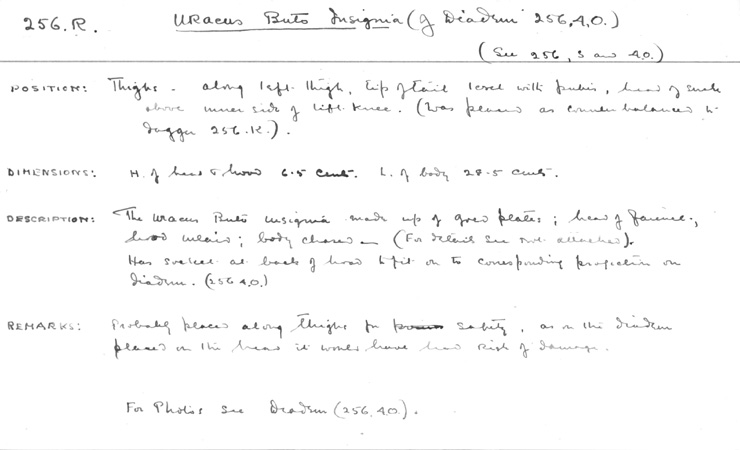 256.R. Uraeus Buto Insignia (of Diadem 256,4,O.)
(See 256, S and 4O.)
POSITION: Thighs - along left thigh, tip of tail level with pubis, head of snake
above inner side of left knee. (Was placed as counter balance to
dagger 256.K.).
DIMENSIONS: H. of head & hood 6.5 cents. L. of body 28.5 cents.
DESCRIPTION: The Uraeus Buto insignia made up of gold plates; head of faience;
hood inlaid; body chased (For details see note attached).
Has socket at back of hood to fit on to corresponding projection on
diadem. (256 4,O.)
REMARKS: Probably placed along thighs for safety, as on the diadem
placed on the head it would have had risk of damage.
For Photos see Diadem (256, 4O.).